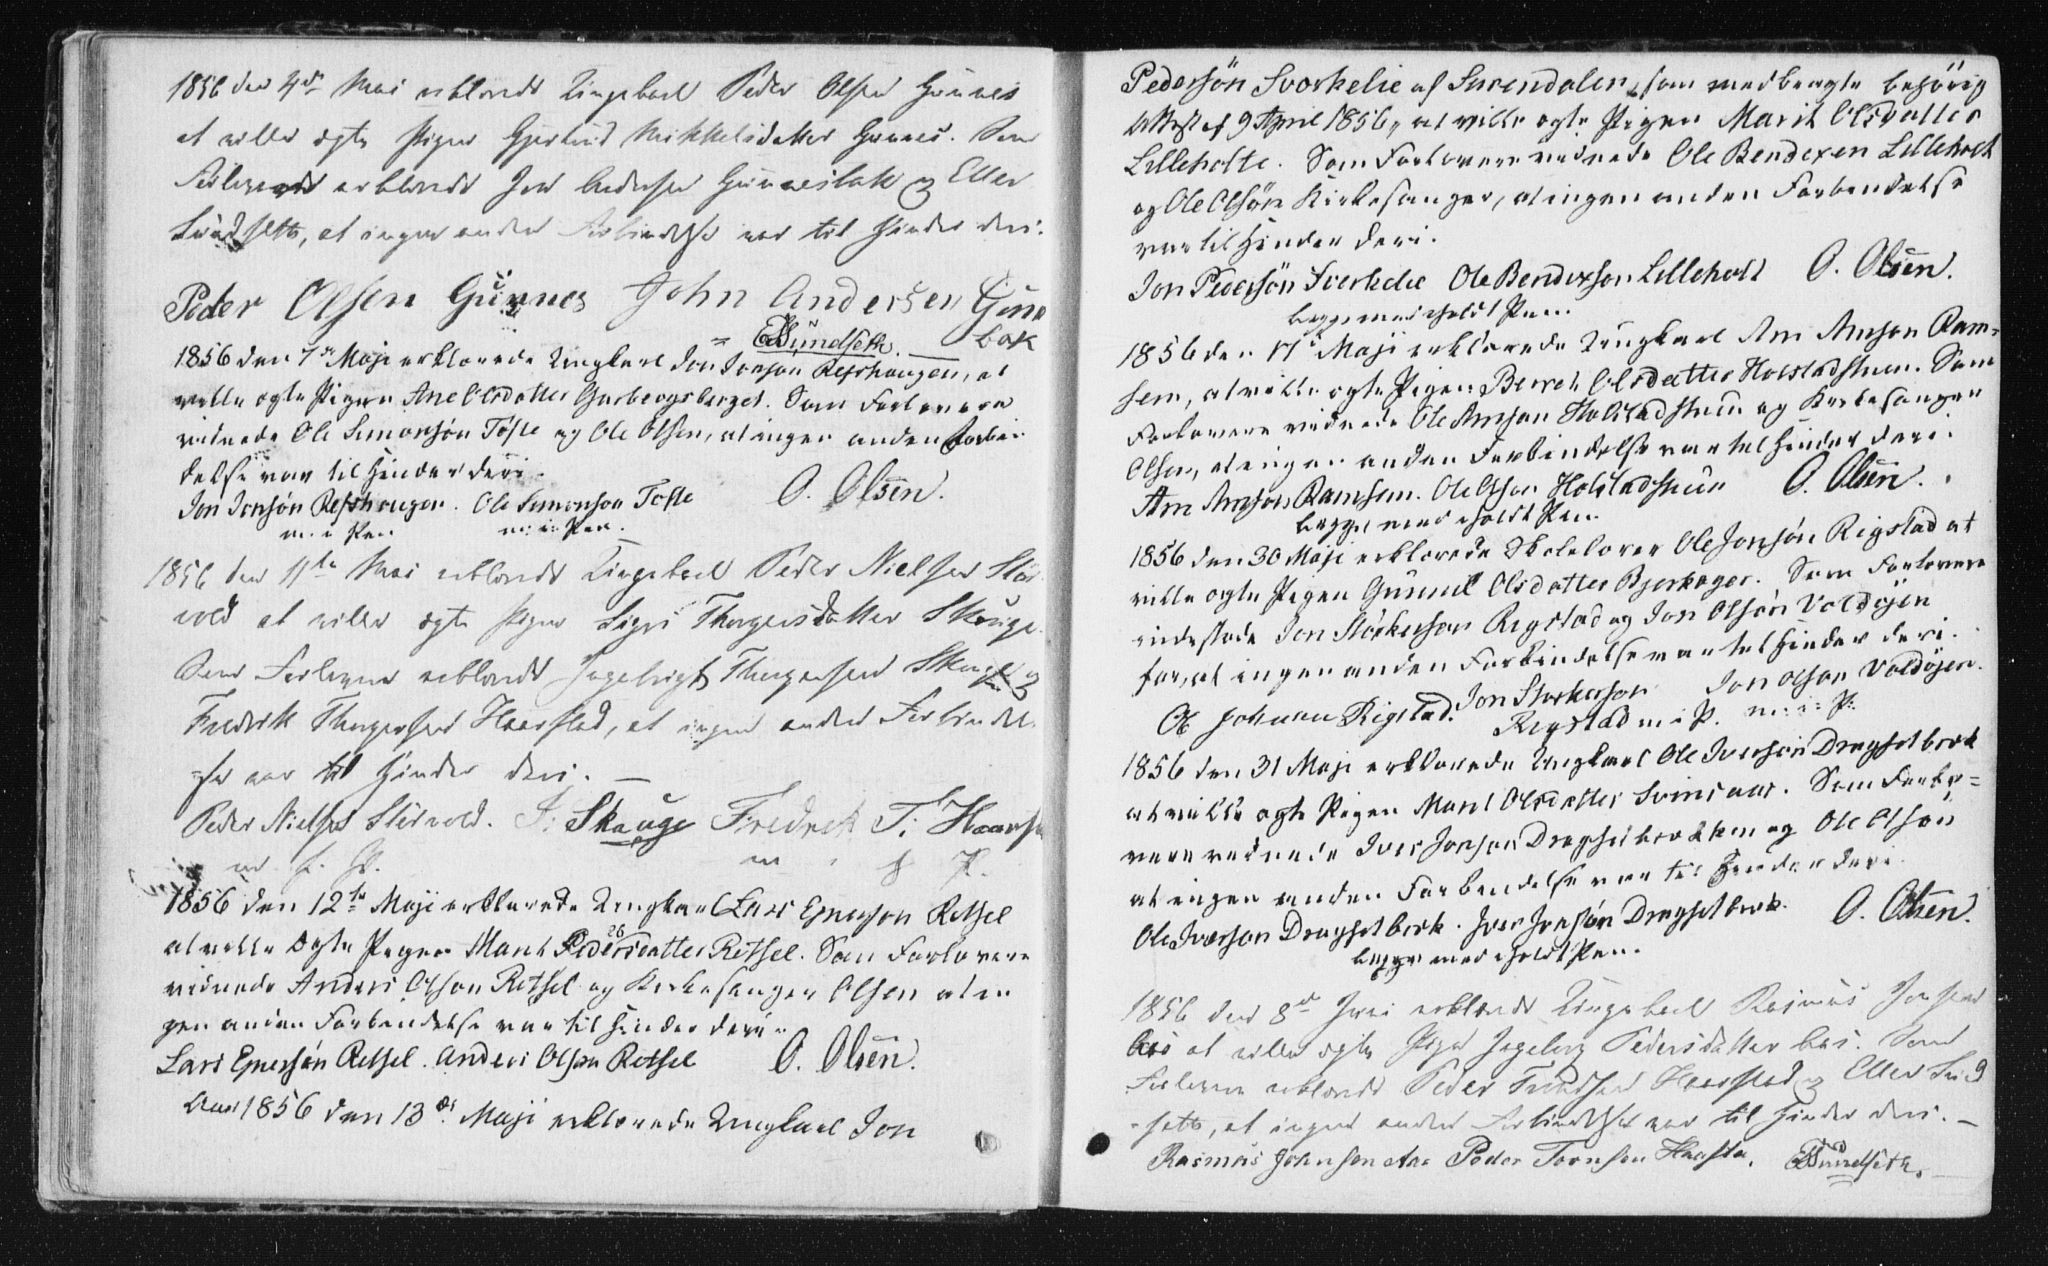 1856 den 4de Mai erklærede Ungekarl Peder Olsen Gunnes
at ville ægte Pigen Gjertrud Mikkelsdatter Gunnes. Som
Forlovere erklærede Jon Andersen Gunnesbak og Eller
Sundseth, at ingen anden Forbindelse var til Hinder deri.
Peder Olsen Gunnes John Andersen Gun
ESundseth. bak
1856 den 7de Maji erklærede Ungkarl Jon Jonsøn Refshaugen, at
ville ægte Pigen Ane Olsdatter Garbergsberget. Som Forlovere
vidnede Ole Simonsøn Tofte og Ole Olsen, at ingen anden Forbin
delse var til Hinder deri.
Jon Jonsøn Refshaugen. Ole Simonson Tofte O. Olsen.
m. i Pen m: i: Pen
1856 den 11te Mai erklærede Ungekarl Peder Nielsen Stør
vold at ville ægte Pigen Sigri Thorgersdatter Skauge.
Som Forlovere erklærede Ingebrigt Thorgersen Skauge og
Fredrik Thorgersen Haarstad, at ingen anden Forbindel
se var til Hinder deri. —
Peder Nielsen Størvold. I: Skauge Fredrek T: Haarst
m. f. P. m f P.
1856 den 12te Maji erklærede Ungkarl Lars Ejnersøn Rethsel
at ville ægte Pigen Marit Pedersdatter 26 Rethsel. Som Forlovere
vidnede Anders Olson Rethsel og Kirkesanger Olsen at in
gen anden Forbindelse var til Hinder deri.
Lars Ejnersøn Rethsel. Anders Olson Rethsel O. Olsen.
Aar 1856 den 13de Maji erklærede Ungkarl Jon
Pedersøn Svorkelie af Surendalen, som medbragte behörig
Attest af 9 April 1856, at ville ægte Pigen Marit Olsdatter
Lilleholte. Som Forlovere vidnede Ole Bendixen Lilleholt
og Ole Olsön Kirkesanger, at ingen anden Forbindelse
var til Hinder deri.
Jon Pedersön Svorkelie Ole Bendixson Lilleholt O. Olsen.
begge med holdt Pen.
1856 den 17de Maji erklærede Ungkarl Arn Arnson Ram=
sem, at ville ægte Pigen Beret Olsdatter Holstadstuen. Som
Forlovere vidnede Ole Arnson Holstadstuen og Kirkesanger
Olsen, at ingen anden Forbindelse var til Hinder deri.
Arn Arnson Ramsem. Ole Olson Holstadstuen O. Olsen.
begge med holdt Pen.
1856 den 30 Maji erklærede Skolelærer Ole Jonsön Rigstad at
ville ægte Pigen Gunnil Olsdatter Bjerkager. Som Forlovere
indestode Jon Störkerson Rigstad og Jon Olsön Voldöjen
for, at ingen anden Forbindelse var til Hinder deri.
Ole Johnsen Rigstad. Jon Storkerson Jon Olson Voldöjen.
Rigstad m i P. m: i: P:
1856 den 31 Maji erklærede Ungkarl Ole Iversön Dragsetbrek
at ville ægte Pigen Marit Olsdatter Svinsaas. Som Forlo=
vere vidnede Iver Jonson Dragsetbrekken og Ole Olsön
at ingen anden Forbindelse var til Hinder deri.
Ole Iverson Dragsetbrek. Iver Jonsön Dragsetbrek. O. Olsen.
begge med holdt Pen.
1856 den 8de Juni erklærede Ungekarl Rasmus Jonsen
Aas at ville ægte Pige Ingeborg Pedersdatter Aas. Som
Forlovere erklærede Peder Trondsen Haarstad og Eller Sund
seth, at ingen anden Forbindelse var til Hinder deri. —
Rasmus Johnsen Aas Peder Tronsen Haarsta. ESundseth.